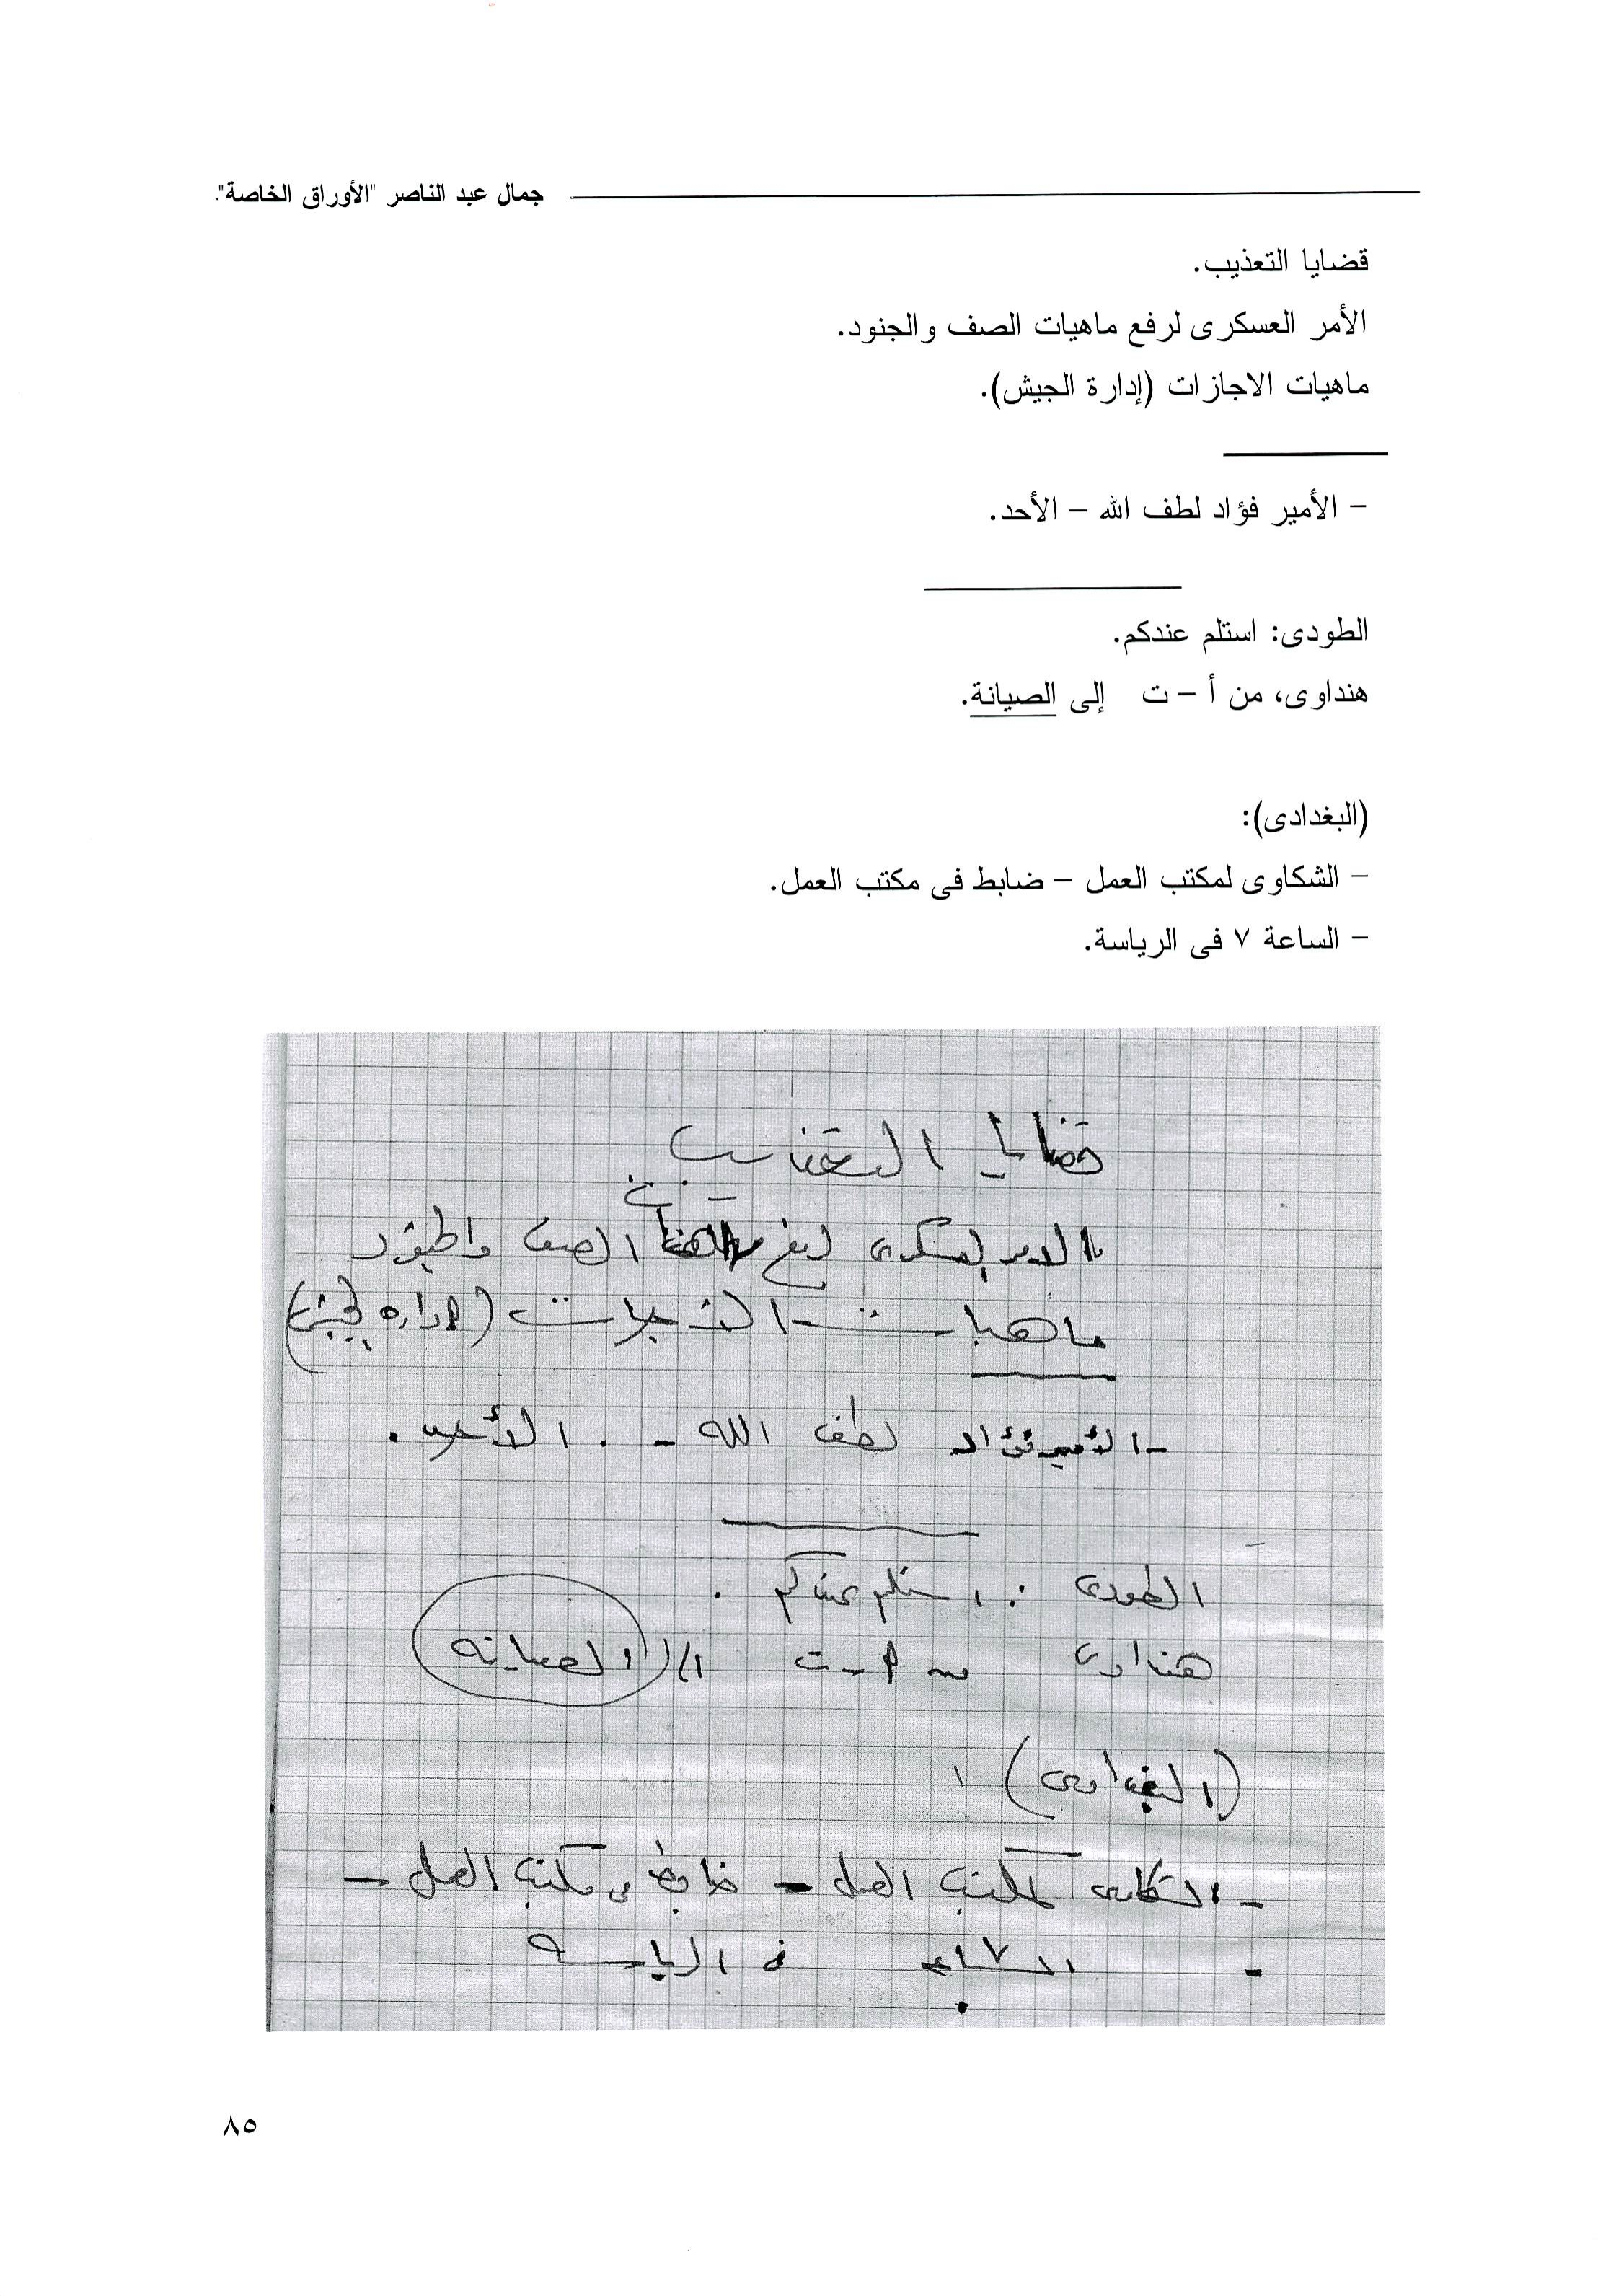 جمال عبد الناصر "الأوراق الخاصة".
قضايا التعذيب.
الأمر العسكرى لرفع ماهيات الصف والجنود.
ماهيات الاجازات (إدارة الجيش).
– الأمير فؤاد لطف الله – الأحد.
الطودى: استلم عندكم.
هنداوى، من أ – ت إلى الصيانة.
(البغدادى):
– الشكاوى لمكتب العمل – ضابط فى مكتب العمل.
– الساعة ٧ فى الرياسة.
قضايا التعذيب
الأمر العسكرى لرفع ماهيات الصف والجنود
ماهيات الاجازات (إدارة الجيش)
- الأمير فؤاد لطف الله - . الأحد .
الطودى : استلم عندكم .
هنداوى من أ - ت إلى (الصيانه)
(البغدادى)
- الشكاوى لمكتب العمل - ضابط فى مكتب العمل -
- الساعه ٧ فى الرياسه
٨٥